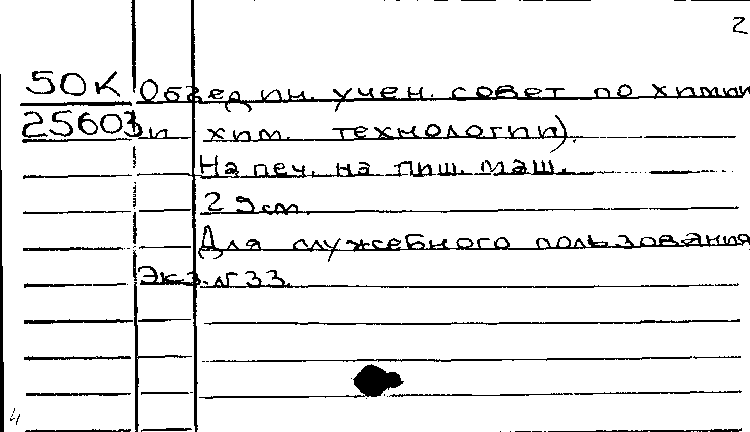 2
50К Объедин. учен. совет по химии
25603 и хим. технологии).
На печ. на пиш. маш.
29 см.
Для служебного пользования
Экз. № 33.
4